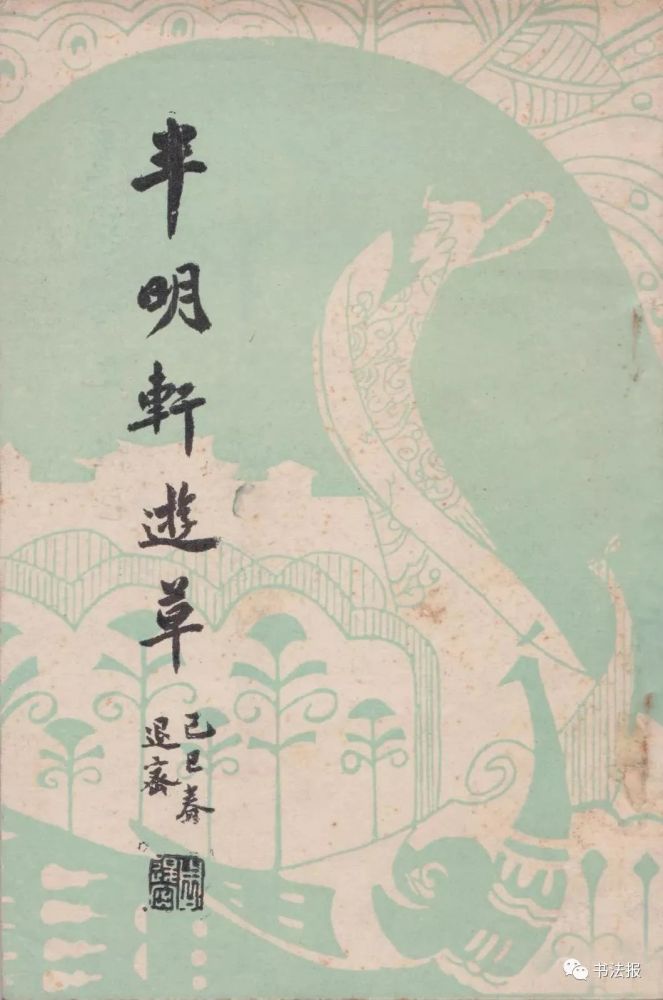 半明軒遊草
己巳春
退密
书法报